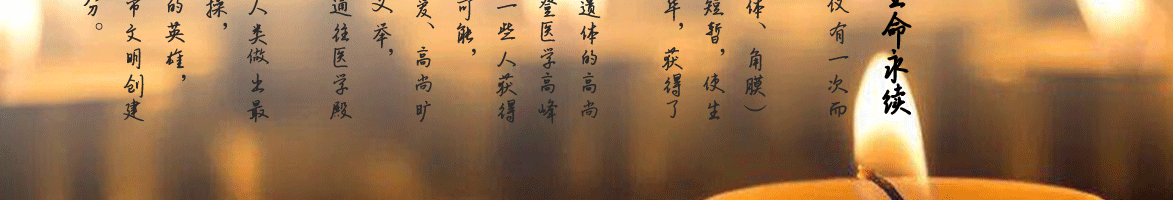 生命永续
仅有一次而
体、角膜）
短暂，使生
年，获得了
遗体的高尚
登医学高峰
一些人获得
可能，
爱、高尚旷
义举，
通往医学殿
人类做出最
操，
的英雄，
市文明创建
分。